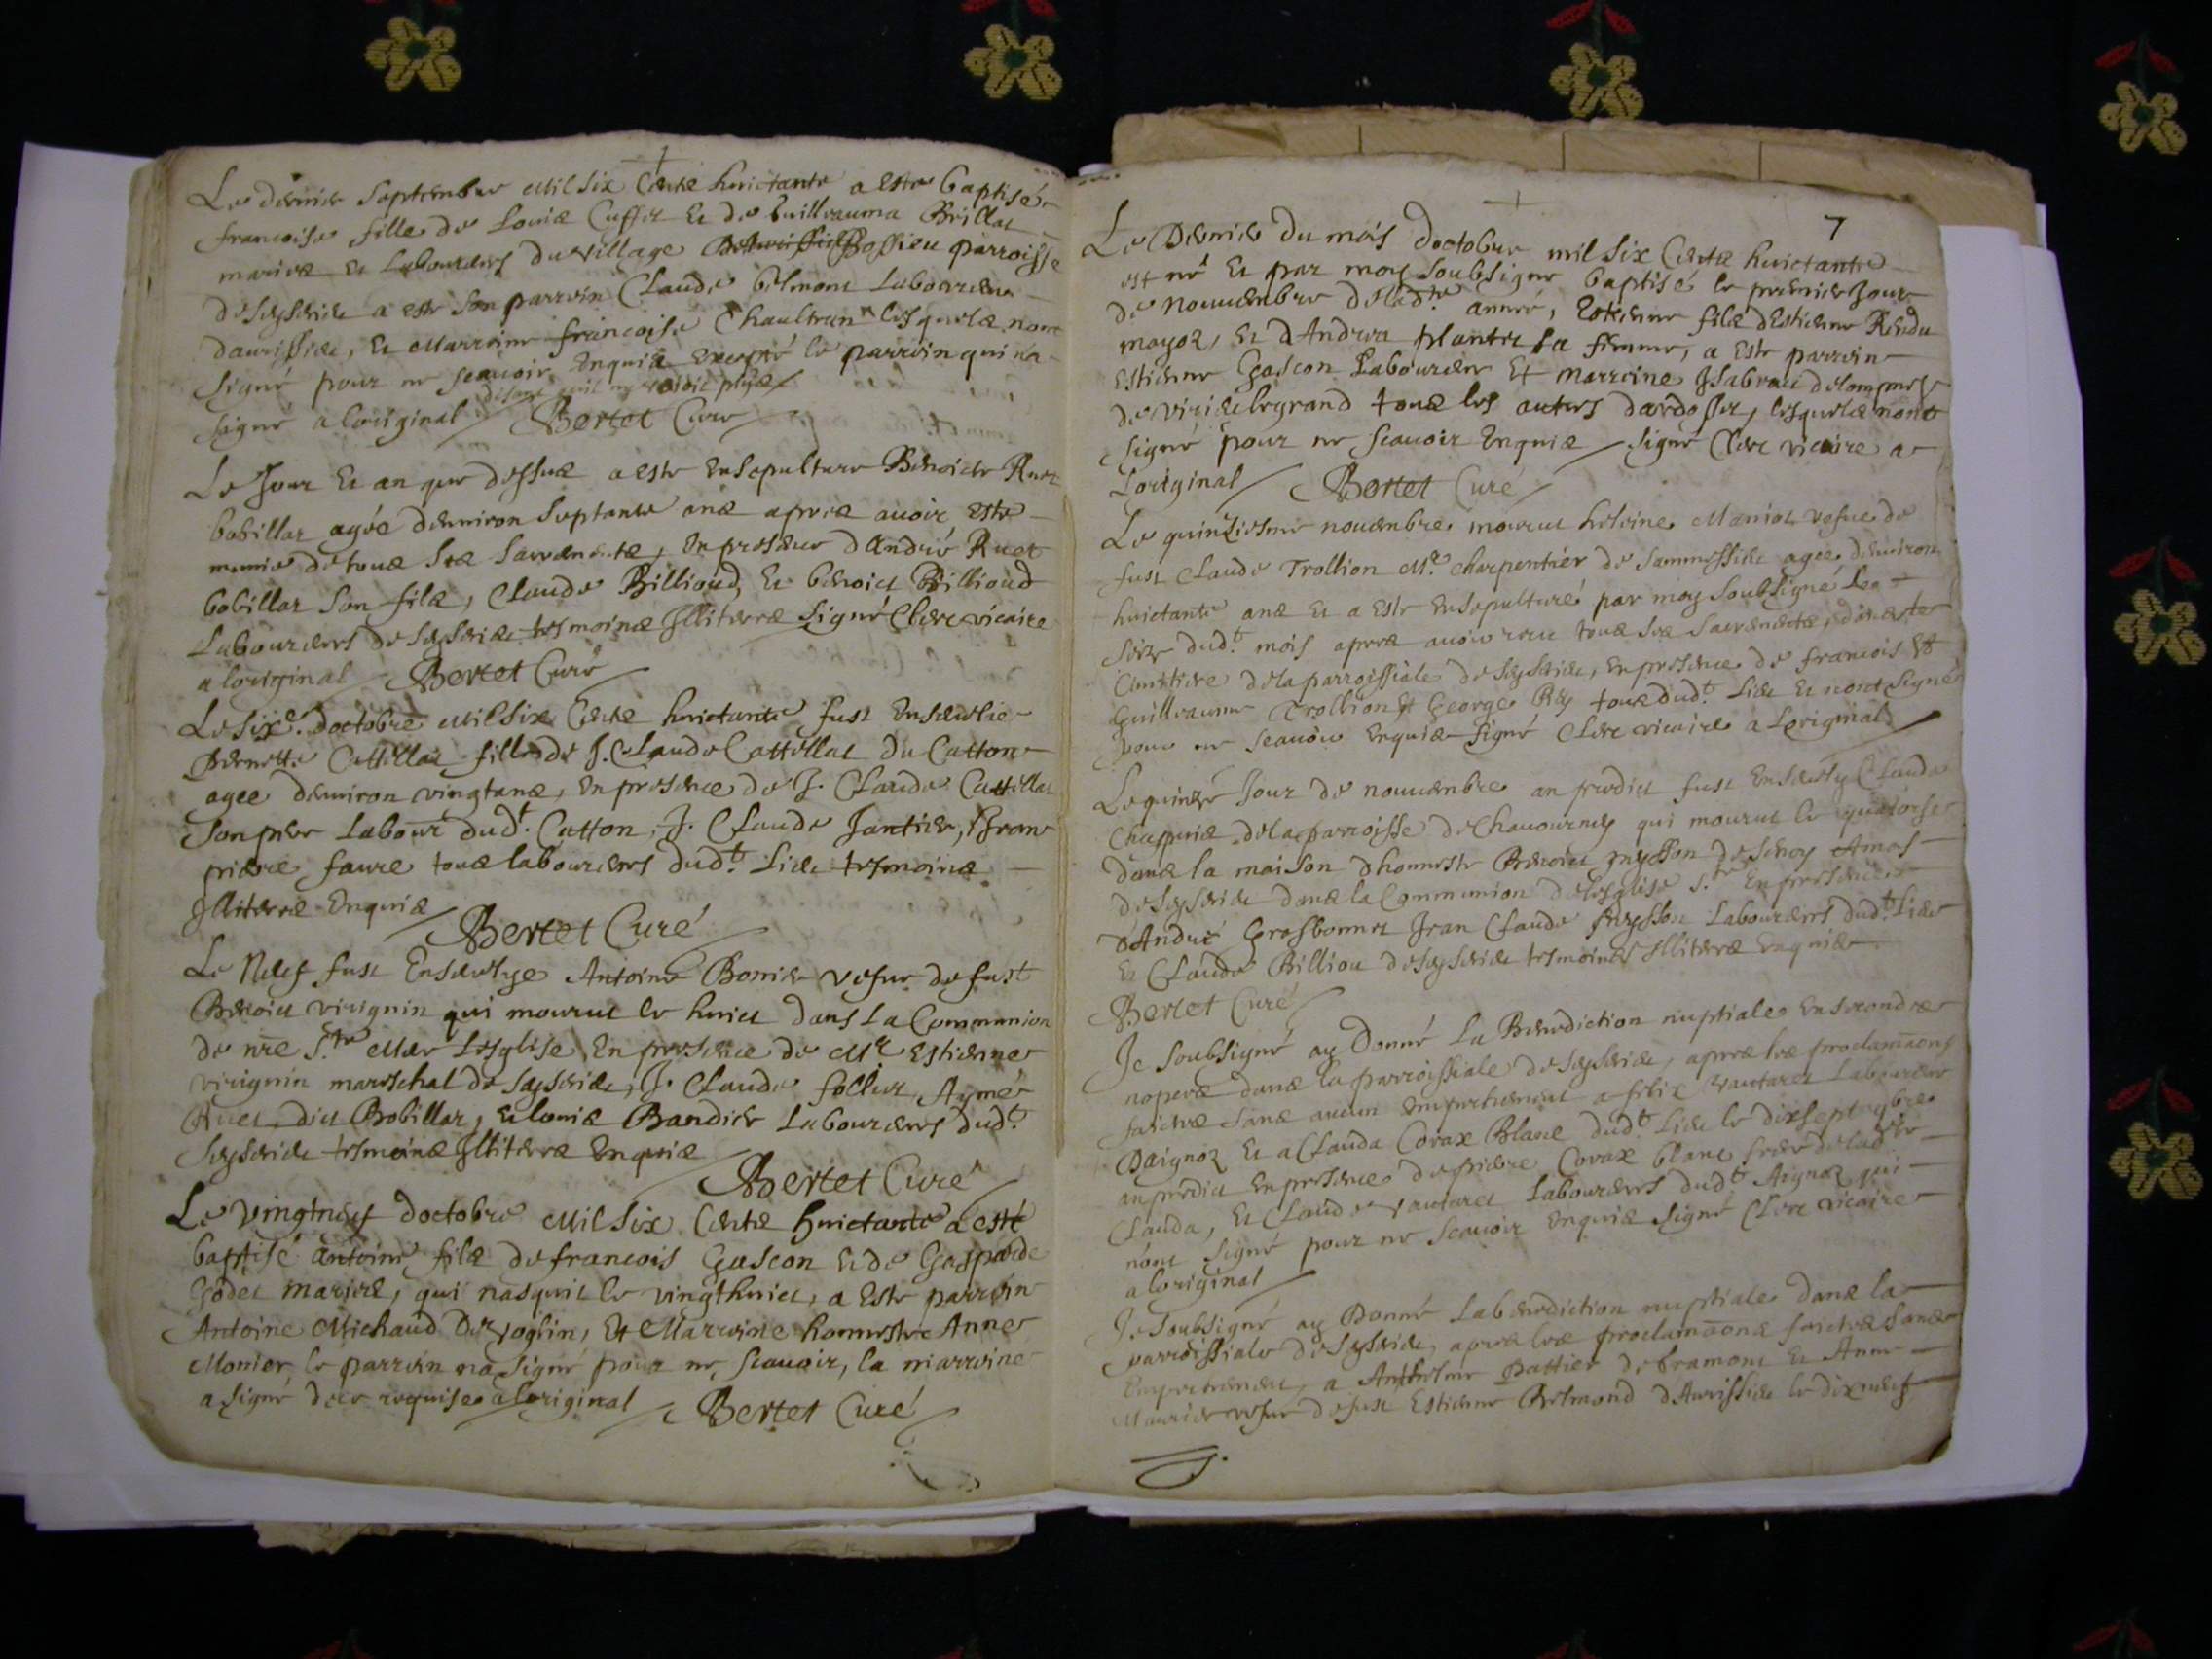 Le dernier Septembre Mil six Cents huictante a este baptisée
francoise fille de Louis Cusset et de Guilleauma Brillat
mariés et Laboureurs du village Bossieu parroisse
de Seyssieu a este son parrein Claude belmont Laboureur
daurissieu, et Marreine francoise Chaultrun lesquels nont
signé pour ne scauoir Enquis Excepté le parrein qui na
signé a loriginal Bertet Curé
Le Jour et an que dessus a este Ensepulture Benoiste Ruet
bobillar agée denuiron septante ans apres auoir este
munie de tous Stz Sacrements, En presence d André Ruet
bobillar son fils, Claude Billioud, et benoict Billioud
Laboureurs de Seyssieu tesmoins Illiteres signé Clerc vicaire
a loriginal Bertet Curé
Le sixe. doctobre Mil six Cents huictante fust Enseuelie
Pernette Cattillat fille de J. Claude Cattillat du Catton
agee denuiron vingtans, En presence de J. Claude Cattillat
son pere Labour. dudt. Catton, J. Claude Jantier,
pierre faure tous laboureurs dudt. Lieu tesmoins
Illiteres Enquis
Bertet Curé
Le Neuf fust Enseuelye Antoine Bonier vefue de fust
Benoict virignin qui mourut le huict dans La Communion
de nre Ste Mere Lesglise, En presence de Me Estienne
virignin mareschal de Seyssieu, J. Claude follier, Aymé
Ruet dict Bobillar, et louis Bandier Laboureurs dudt.
Seyssieu tesmoins Illiteres Enquis
Bertet Curé
Le vingtneuf doctobre Mil six Cents huictante a esté
baptisé antoine fils de francois Gascon et de Gasparde
Godet mariés, qui nasquit le vingthuict, a este parrein
Antoine Michaud De voglin, Et Marreine honneste Anne
Monier, le parrein na signé pour ne scauoir, la marreine
a signé de ce requise a loriginal Bertet Curé
7
Le Dernier du mois doctobre mil six Cents huictante
est né et par moy soubsigné baptisé le premier Jour
de nouuembre deladte année, Estienne fils dEstienne Rendu
mayoz, et d Andrea plantet sa femme, a este parrein
Estienne Gascon Laboureur Et marreine Isabeau
de virieulegrand tous les autres dardosset, lesquels nont
signé pour ne scauoir Enquis signé Clerc vicaire a
Loriginal Bertet Curé
Le quinziesme nouembre mourut heleine Maniot vefue de
fust Claude Trollion Me. charpentier de Sammessieu agee denuiron
huictante ans et a este Ensepulturé par moy soubsigné Le
seize dudt. mois apres auoir receu tous Stz Sacrements,
Cimetiere dela parroissiale de Seyssieu, En presence de francois Et
Guilleaume Trollion Et George Rey tous dudt. Lieu et nont signé
pour ne scauoir Enquis signé Clerc vicaire a Loriginal
Le quinze Jour de nouuembre an predict fust Enseuely Claude
Chappuis dela parroisse de Chauournay qui mourut le quatorse
dans la maison dhonneste Benoict
de Seyssieu dans la Communion de lesglise Ste En presence
d André Grosbonnet Jean Claude Laboureurs dudt. Lieu
et Claude Billiou de Seyssieu tesmoins Illiteres Enquis
Bertet Curé
Je soubsigné ay Donné La Benediction nuptiale En secondes
nopces dans la parroissiale de Seyssieu, apres les proclamaons
faictes sans aucun Empechement a felix vautaret Laboureur
Daignoz et a Clauda Corax Blanc dudt. Lieu le dixsept 9bre
an predict En presence de pierre Corax blanc frere deladte
Clauda, Et Claude vautaret Laboureurs dudt. Aignoz qui
nont signé pour ne scauoir Enquis signé Clerc vicaire
a loriginal
Je soubsigné ay Donné La benediction nuptiale dans la
parroissiale de Seyssieu, apres les proclamaons faictes sans
Empechement, a Anthelme Pattier de bramont et Anne
Maurier vefue de fust Estienne Belmond d Aurissieu le dixneuf